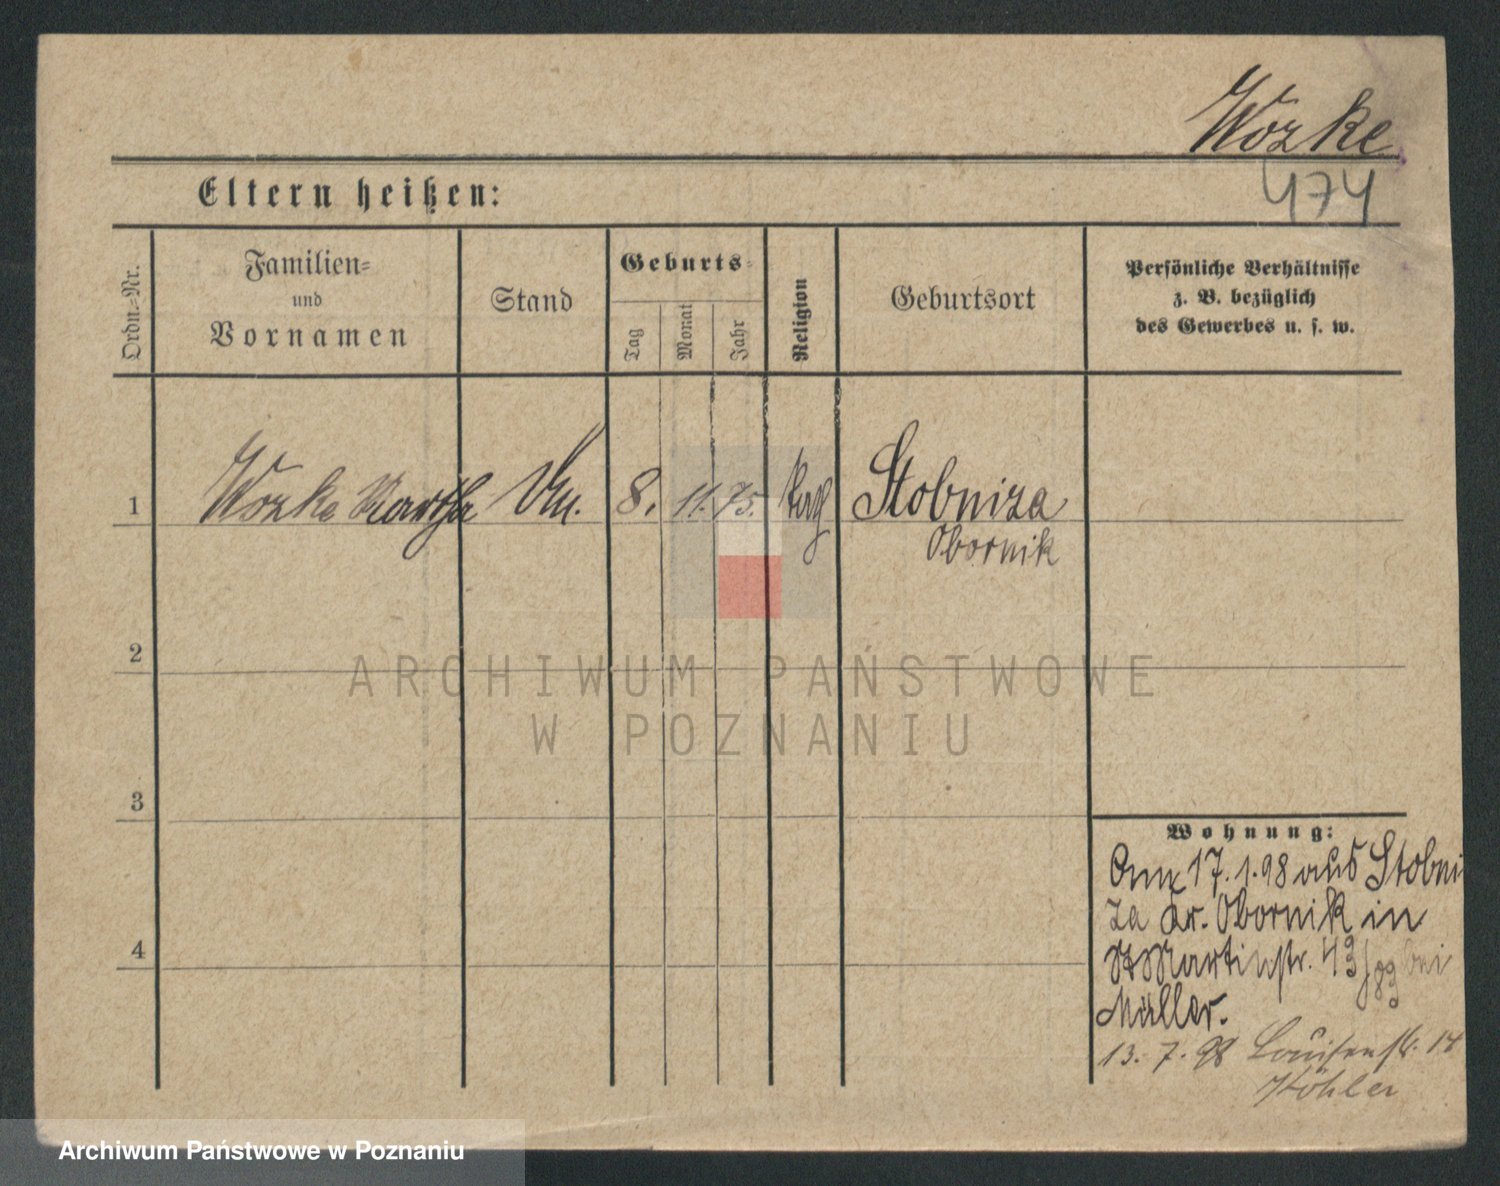 Wozke
474
Eltern heißen:
Ordn.=Nr.
Familien=
und
Vornamen
Stand
Geburts=
Tag
Monat
Jahr
Religion
Geburtsort
Persönliche Verhältnisse
z. B. bezüglich
des Gewerbes u. s. w.
1 Wozke Martha 8. 11. 75. kath Stobniza
Obornik
2
3
4
Wohnung:
17.1.98 aus Stobni
za Kr. Obornik in
St Martinstr. 43/89 bei
Müller.
13. 7. 98 Louisenstr. 14
Köhler
ARCHIWUM PAŃSTWOWE
W POZNANIU
Archiwum Państwowe w Poznaniu